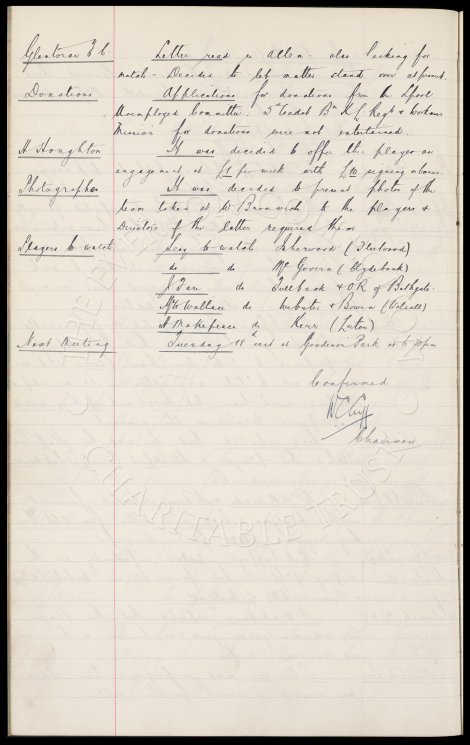 Glentoran F.C. Letter read re Allen - also asking for
match - Decided to let matter stand over at present.
Donations Applications for donations from the Lpool
Unemployed Committee. 5th Cadet Bn K.L. Regt &
Mission for donations were not entertained.
H Houghton It was decided to offer this player an
engagement at £1 per week with £10 signing bonus.
Photographs It was decided to present photos of the
team taken at W Bromwich to the players &
Directors if the latter required them
Players to watch Leay to watch Isherwood (Fleetwood)
do do McGovern (Clydebank)
J. Fare do Full back & O.R. of Bathgate
Mr Wallace do Webster & Bowen (Walsall)
H Makepeace do Kerr (Luton)
Next Meeting Tuesday 18 inst at Goodison Park at 6.30pm
Confirmed
W.C. Cuff
Chairman
CHARITABLE TRUST